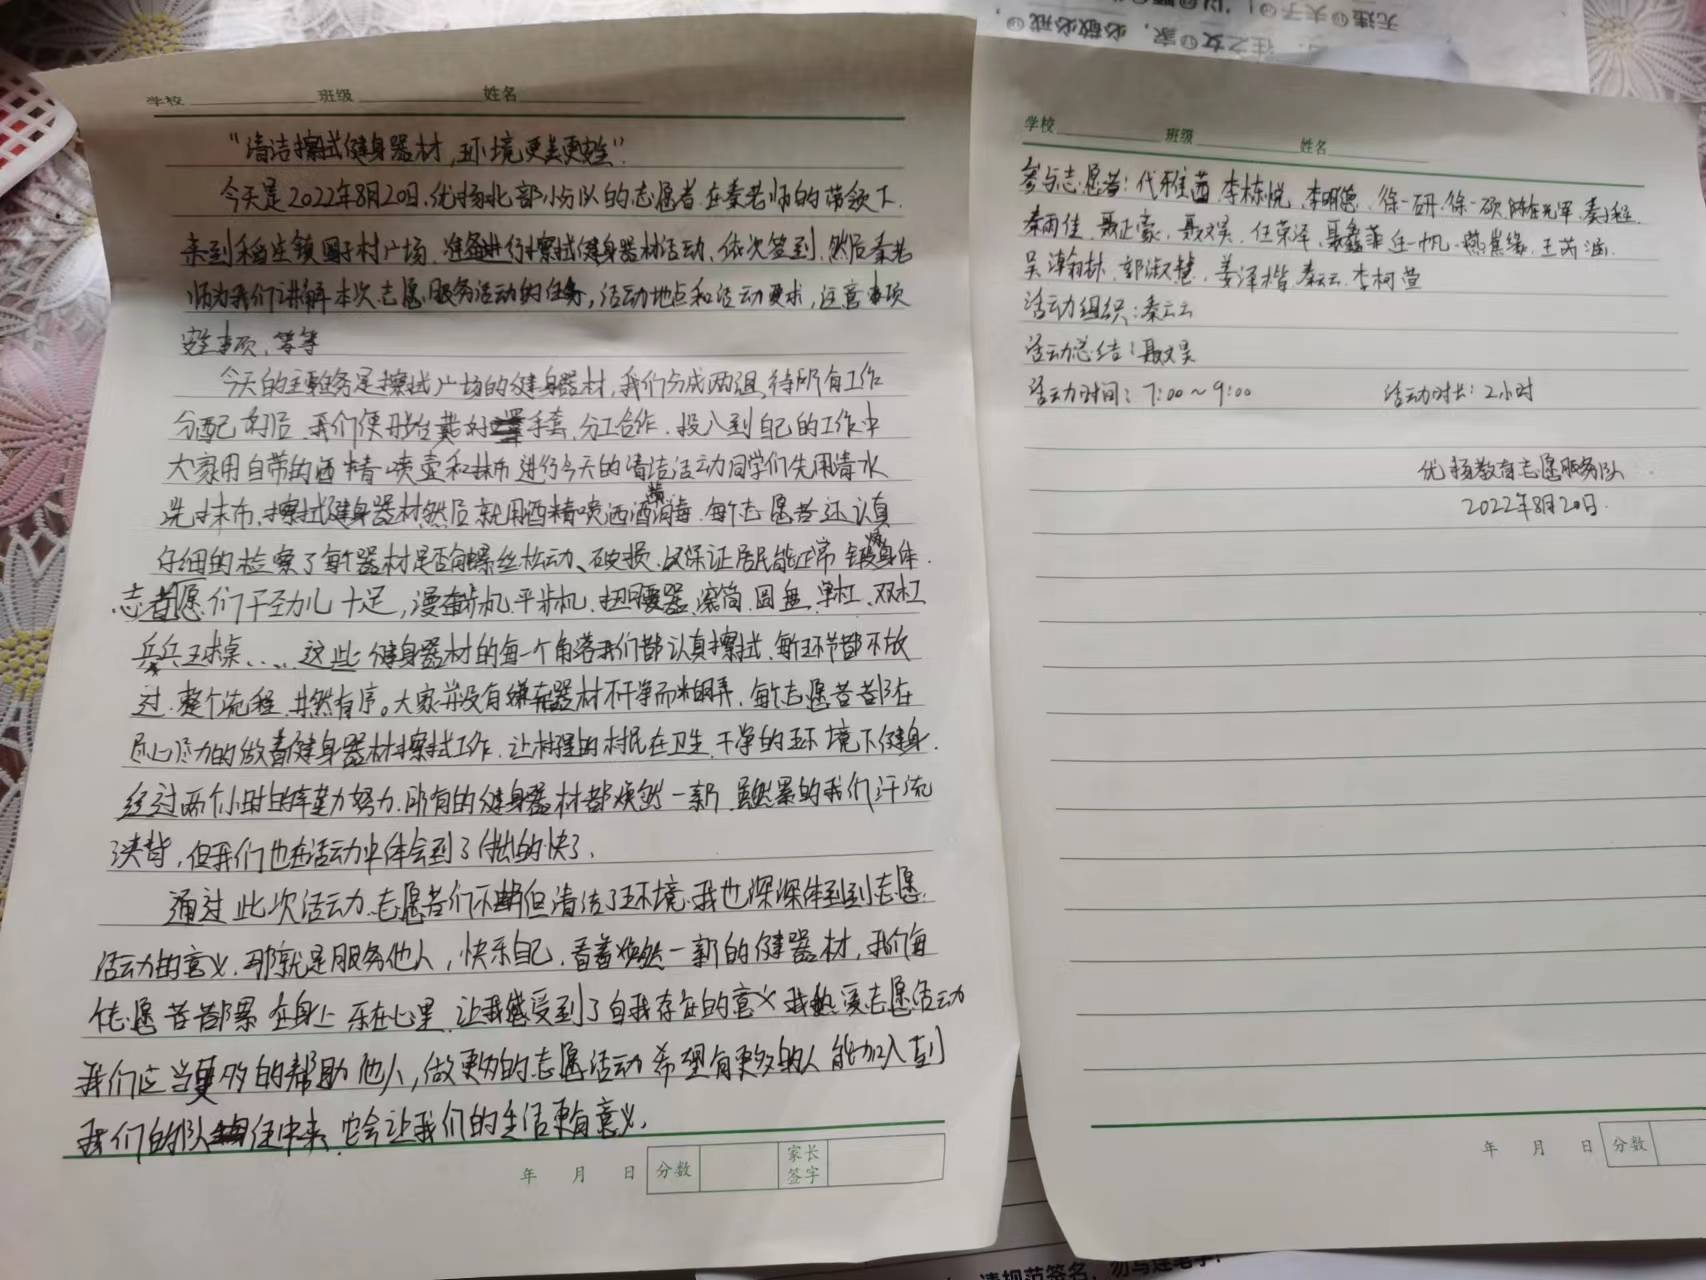 无违夫子
往之女家，必敬必戒
学校 班级 姓名
“清洁擦拭健身器材，环境更美更安全”
今天是2022年8月20日，优扬北部小分队的志愿者在秦老师的带领下
来到稻庄镇 村广场，准备进行擦拭健身器材活动、依次签到，然后秦老
师为我们讲解本次志愿服务活动的任务，活动地点和活动要求，注意事项
安全事项、等等
今天的主要任务是擦拭广场的健身器材，我们分成两组，待所有工作
分配好后，我们便开始戴好手套，分工合作，投入到自己的工作中
大家用自带的酒精喷壶和抹布进行今天的清洁活动同学们先用清水
洗抹布，擦拭健身器材，然后就用酒精喷洒酒精消毒，每个志愿者还认真
仔细的检察了每个器材是否有螺丝松动、破损，以保证居民能正常锻炼身体.
志愿者们干劲儿十足，漫步机、平步机、扭腰器、滚筒、圆盘、单杠、双杠
乒乓球桌....这些健身器材的每一个角落我们都认真擦拭，每个环节都不放
过，整个流程，井然有序。大家并没有嫌弃器材不干净而糊弄，每个志愿者都在
尽心尽力的做着健身器材擦拭工作，让村里的村民在卫生、干净的环境下健身.
经过两个小时的辛勤努力，所有的健身器材都焕然一新，虽然累的我们汗流
浃背，但我们也在活动中体会到了付出的快了.
通过此次活动，志愿者们不但清洁了环境，我也深深体到到志愿
活动的意义，那就是服务他人，快乐自己，看着焕然一新的健器材，我们每
位志愿者都累在身上 乐在心里，让我感受到了自我存在的意义 我热爱志愿活动
我们应当更多的帮助他人，做更多的志愿活动 希望有更多的人能加入到
我们的队伍中来，它会让我们的生活更有意义.
年 月 日 分数 家长签字
学校 班级 姓名
参与志愿者：代雅茜、李栋悦、李明德、徐一研、徐一硕、 秦子程.
秦雨佳、聂正豪、聂文昊、任荣泽、聂鑫菲、任一帆、燕崔缘、王芮涵.
吴瀚林、郭淑慧、姜泽楷、秦云云、李柯萱
活动组织：秦云云
活动总结：聂文昊
活动时间：7:00～9:00 活动时长：2小时
优扬教育志愿服务队
2022年8月20日.
年 月 日 分数
请规范签名，勿写连笔字！